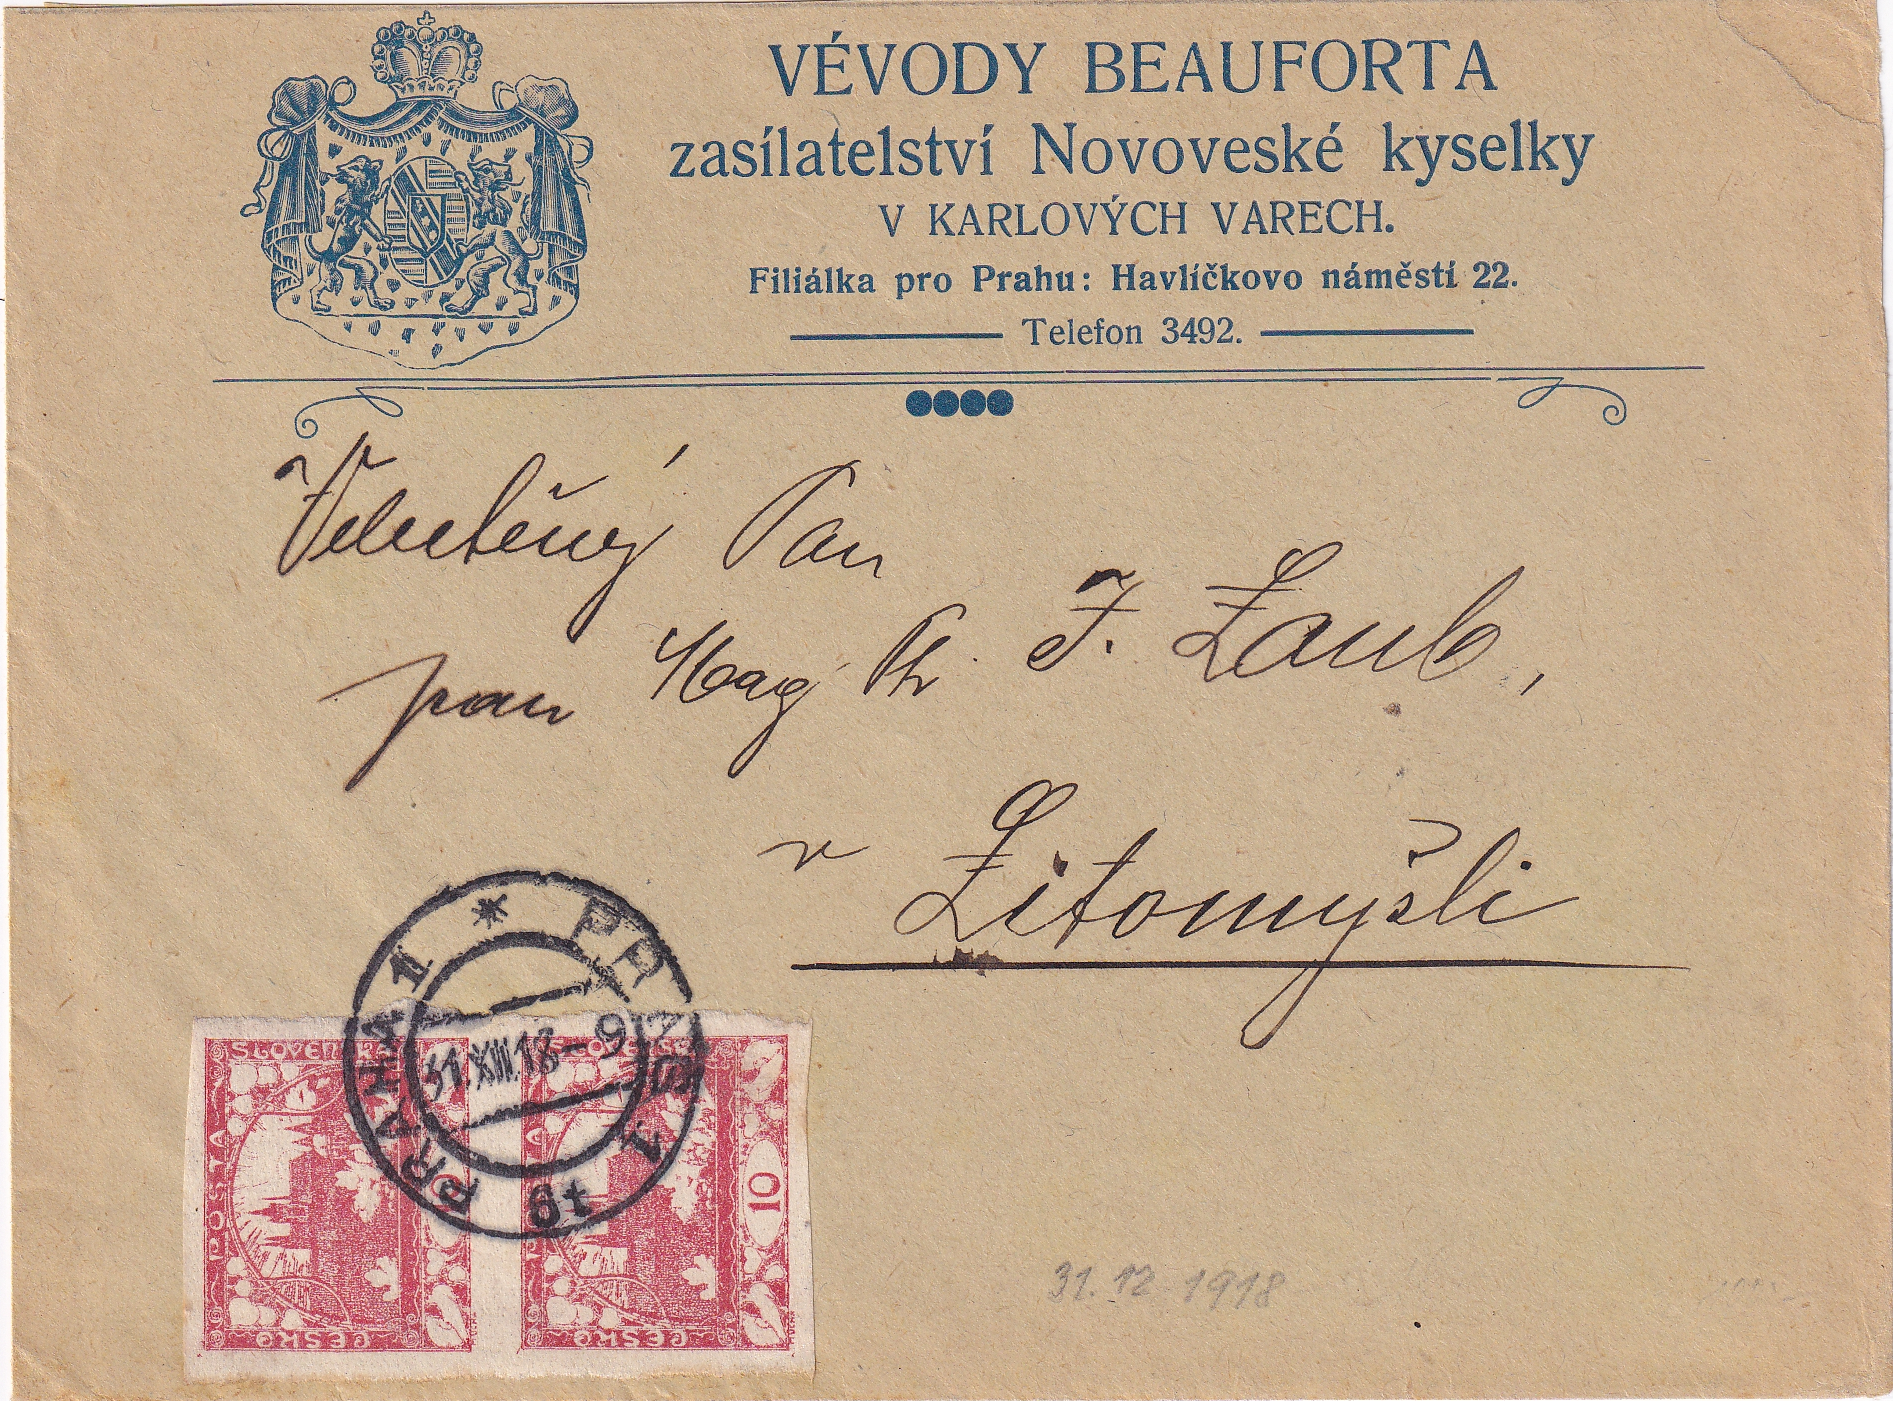 VÉVODY BEAUFORTA
zasílatelství Novoveské kyselky
V KARLOVÝCH VARECH.
Filiálka pro Prahu: Havlíčkovo náměstí 22.
Telefon 3492.
Velectěný Pan
pan Mag Ph. F. Laub,
v Litomyšli
PRAHA 1 * PRAHA 1
31.XII.18-9
6t
SLOVENSKO
POŠTA
ČESKO
SLOVENSKO
10
ČESKO
31.12.1918